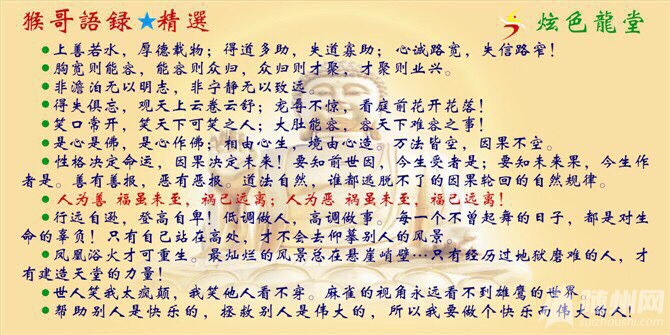 猴哥語録★精選
炫色龍堂
●上善若水，厚德载物；得道多助，失道寡助；心诚路宽，失信路窄！
●胸宽则能容，能容则众归，众归则才聚，才聚则业兴。
●非澹泊无以明志，非宁静无以致远。
●得失俱忘，观天上云卷云舒；宠辱不惊，看庭前花开花落！
●笑口常开，笑天下可笑之人；大肚能容，容天下难容之事！
●是心是佛，是心作佛；相由心生，境由心造。万法皆空，因果不空。
●性格决定命运，因果决定未来！要知前世因，今生受者是；要知未来果，今生作
者是。善有善报，恶有恶报。道法自然，谁都逃脱不了的因果轮回的自然规律。
●人为善 福虽未至，祸已远离；人为恶 祸虽未至，福已远离！
●行远自迩，登高自卑！低调做人，高调做事。每一个不曾起舞的日子，都是对生
命的辜负！只有自己站在高处，才不会去仰摹别人的风景。
●凤凰浴火才可重生。最灿烂的风景总在悬崖峭壁…只有经历过地狱磨难的人，才
有建造天堂的力量！
●世人笑我太疯颠，我笑他人看不穿。麻雀的视角永远看不到雄鹰的世界。
●帮助别人是快乐的，拯救别人是伟大的，所以我要做个快乐而伟大的人！
随州网